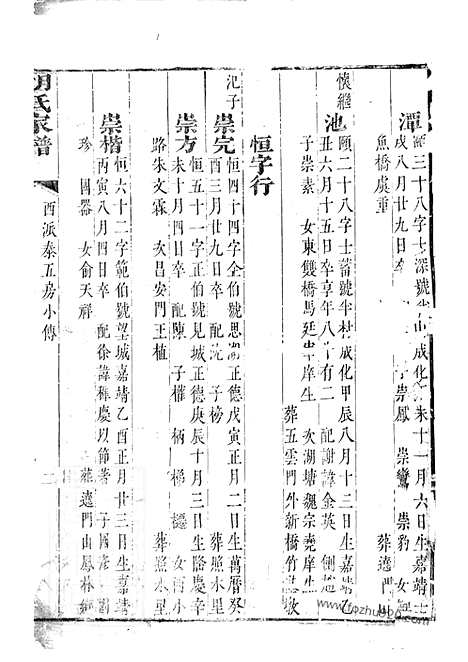 潭
三十八字士深號
成化
未十一月六日生嘉靖
戌八月廿九日卒
子崇鳳 崇鸞 崇豹 女
魚橋虞重
葬遶門
懷繼
池
頤二十八字士蓄號半村成化甲辰八月十二日生嘉靖乙
丑六月十五日卒享年八十有二 配謝諱金英
子崇素 女東雙橋馬廷
庠生 次湖塘魏宗堯庠生
葬五雲門外新橋竹
恒字行
汜子
崇完
恒四十四字全伯號思湖正德戊寅正月二日生萬曆癸
酉三月廿九日卒 配沈 子榜 葬
水里
崇方
恒五十一字正伯號見城正德庚辰十月三日生隆慶辛
未十月四日卒 配陳 子權 柄 梯
女西小
路朱文霖 次昌安門王植 葬
水里
崇楷
恒六十二字範伯號望城嘉靖乙酉正月廿三日生嘉靖
丙寅八月四日卒 配徐諱
慶以節著 子國
珍 國器 女俞天祥 葬遶門山鳳朴鄉
胡氏家譜
西派泰五房小傳
二